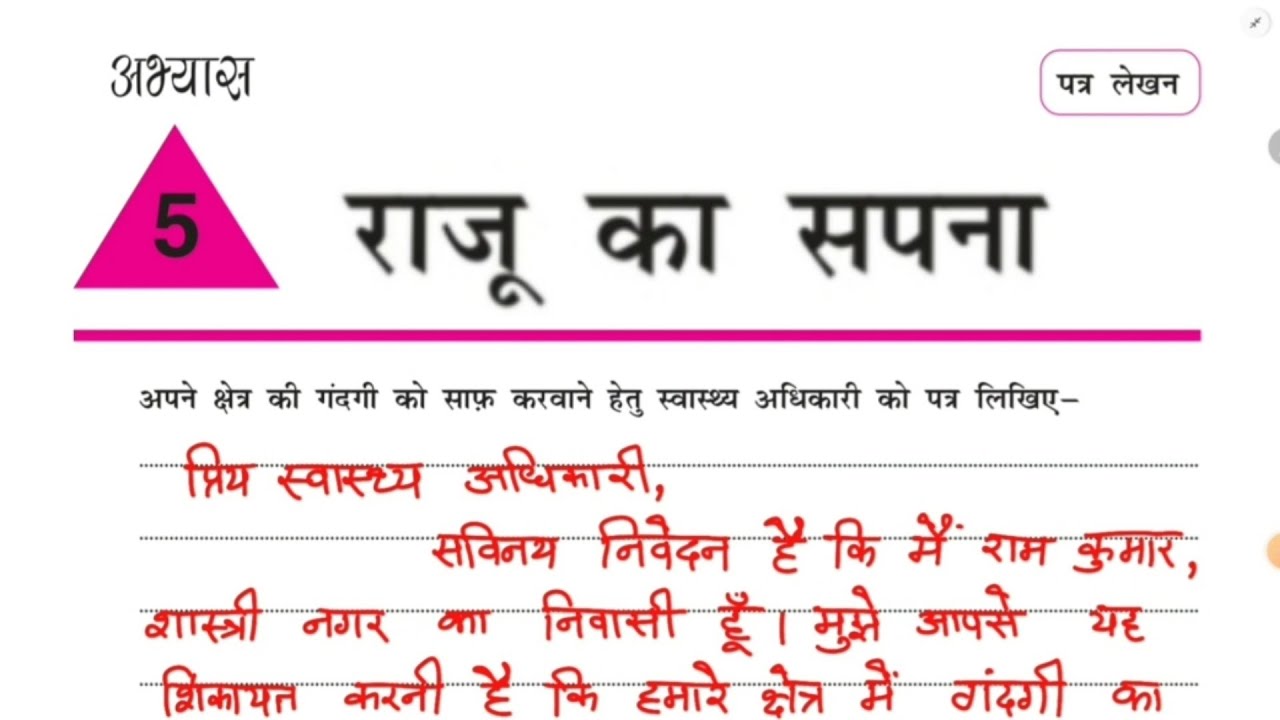 अभ्यास
पत्र लेखन
5
राजू का सपना
अपने क्षेत्र की गंदगी को साफ़ करवाने हेतु स्वास्थ्य अधिकारी को पत्र लिखिए–
प्रिय स्वास्थ्य अधिकारी,
सविनय निवेदन है कि मैं राम कुमार,
शास्त्री नगर का निवासी हूँ। मुझे आपसे यह
शिकायत करनी है कि हमारे क्षेत्र में गंदगी का